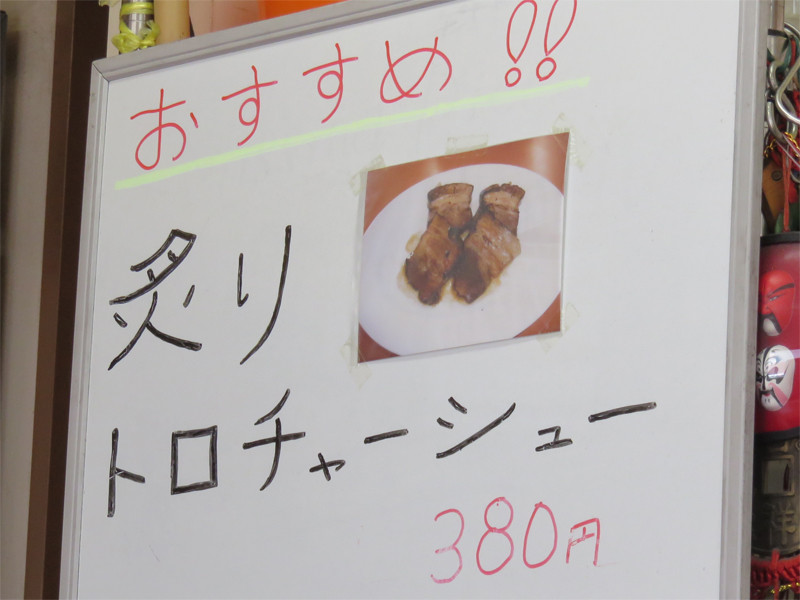 おすすめ!!
炙り
トロチャーシュー
380円